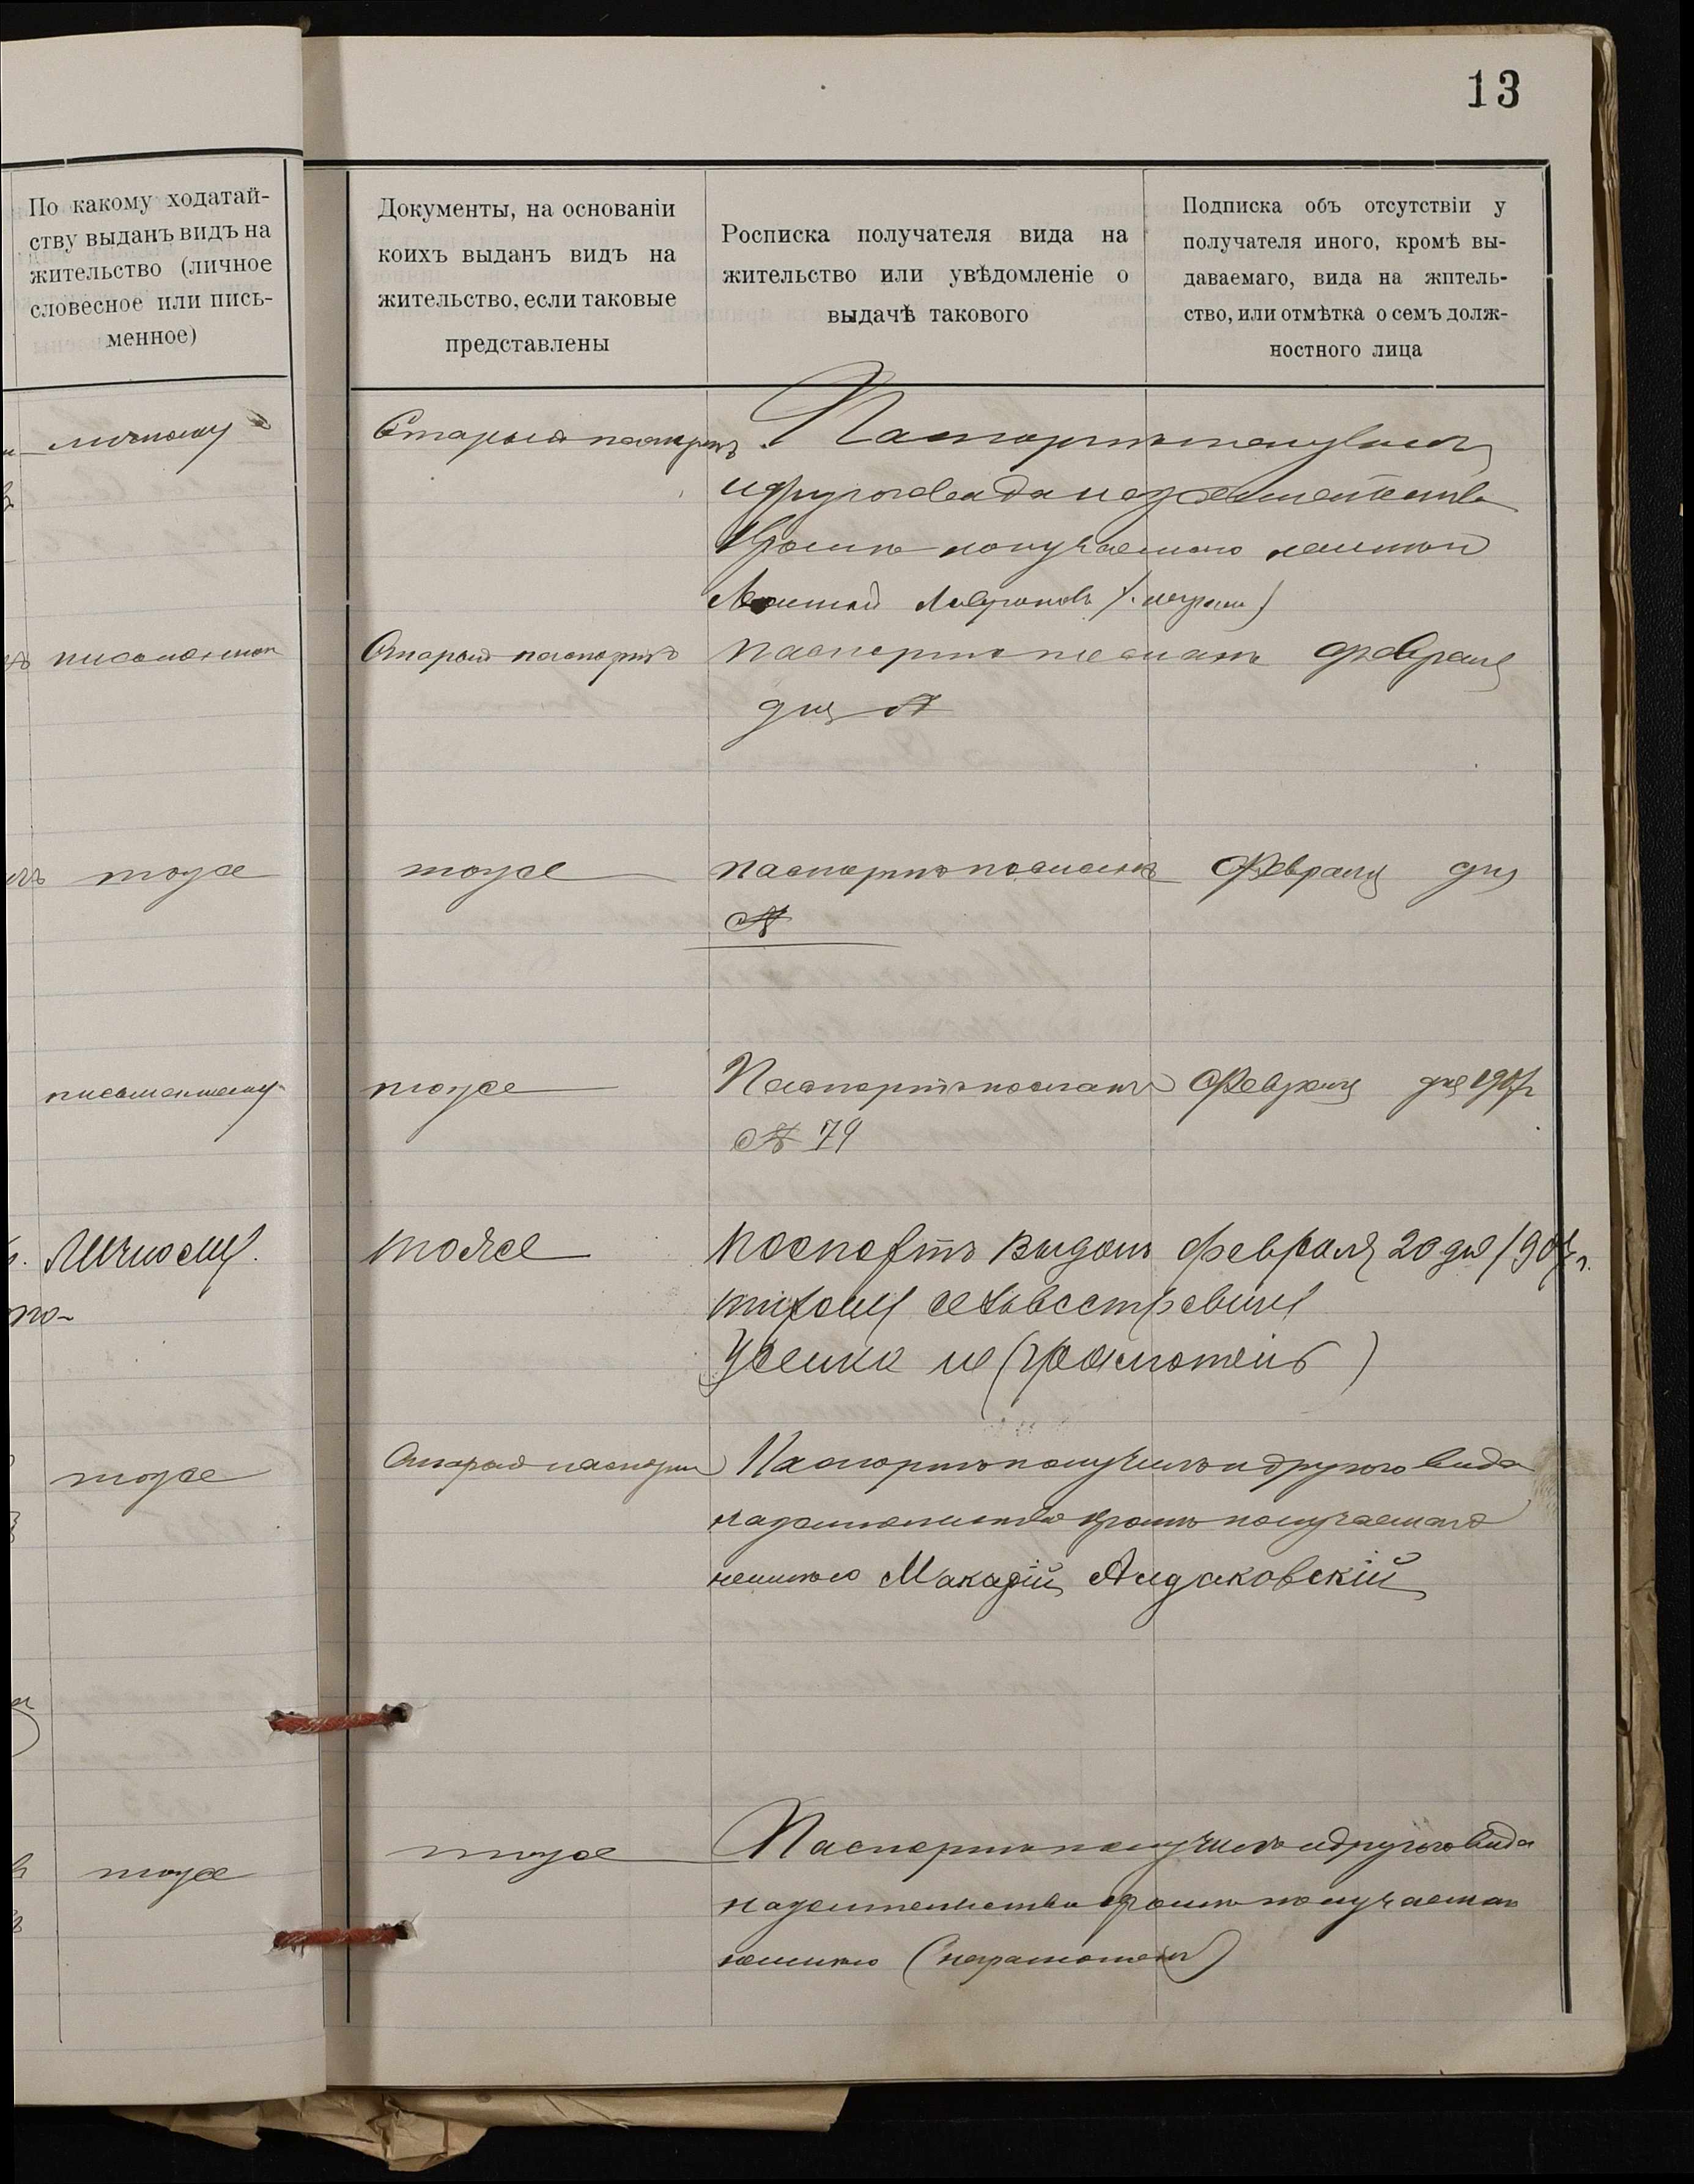 13
По какому ходатай-
ству выданъ видъ на
жительство (личное
словесное или пись-
менное)
Документы, на основаніи
коихъ выданъ видъ на
жительство, если таковые
представлены
Росписка получателя вида на
жительство или увѣдомленіе о
выдачѣ такового
Подписка объ отсутствіи у
получателя иного, кромѣ вы-
даваемаго, вида на жительь-
ство, или отмѣтка о семъ долж-
ностного лица
личному
Старый паспортъ
Паспортъ получилъ
и другого вида на жительство
кромѣ получаемаго не имѣю
Старый паспортъ
Паспортъ посланъ февраля
дня №
тоже
тоже
паспортъ посланъ Февраля дня
№
письменному
тоже
Паспортъ посланъ Февраля дня 1907 г
№ 79
Личному.
тоже
поспортъ выданъ февраля 20 дня 1907 г.
Усенко не (грамотенъ)
тоже
Старый паспортъ
Паспортъ получилъ и другого вида
на жительство кромѣ получаемаго
не имѣю Макарій
тоже
тоже
Паспортъ получилъ и другого вида
на жительство кромѣ получаемаго
не имѣю (неграмотенъ)